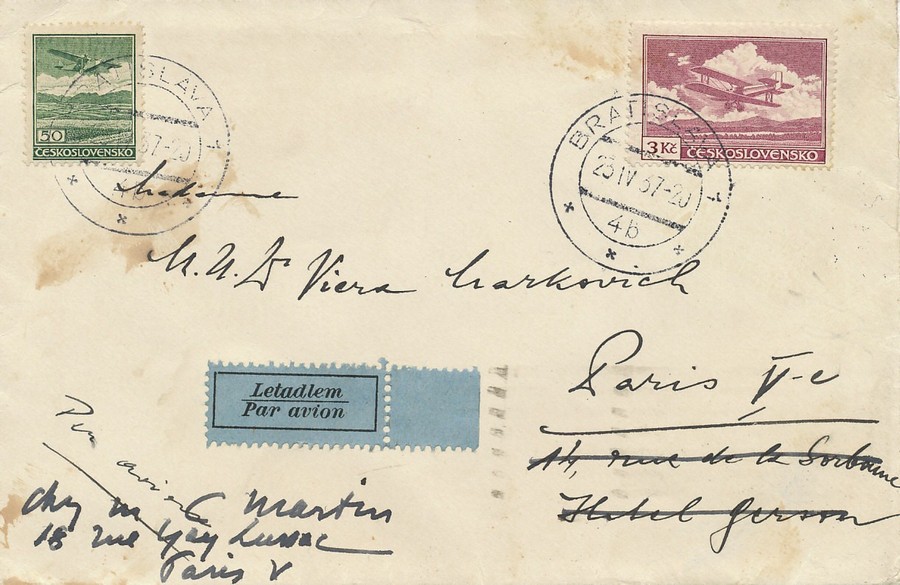 50
ČESKOSLOVENSKO
3 Kč
ČESKOSLOVENSKO
BRATISLAVA 1
37-20
4b
BRATISLAVA 1
23 IV 37-20
4b
Madame
M. U. Dr Viera Markovich
Paris V-e
14, rue de la Sorbonne
Hotel Gerson
Letadlem
Par avion
Par avion
chez m C Martin
18 rue Gay Lussac
Paris V